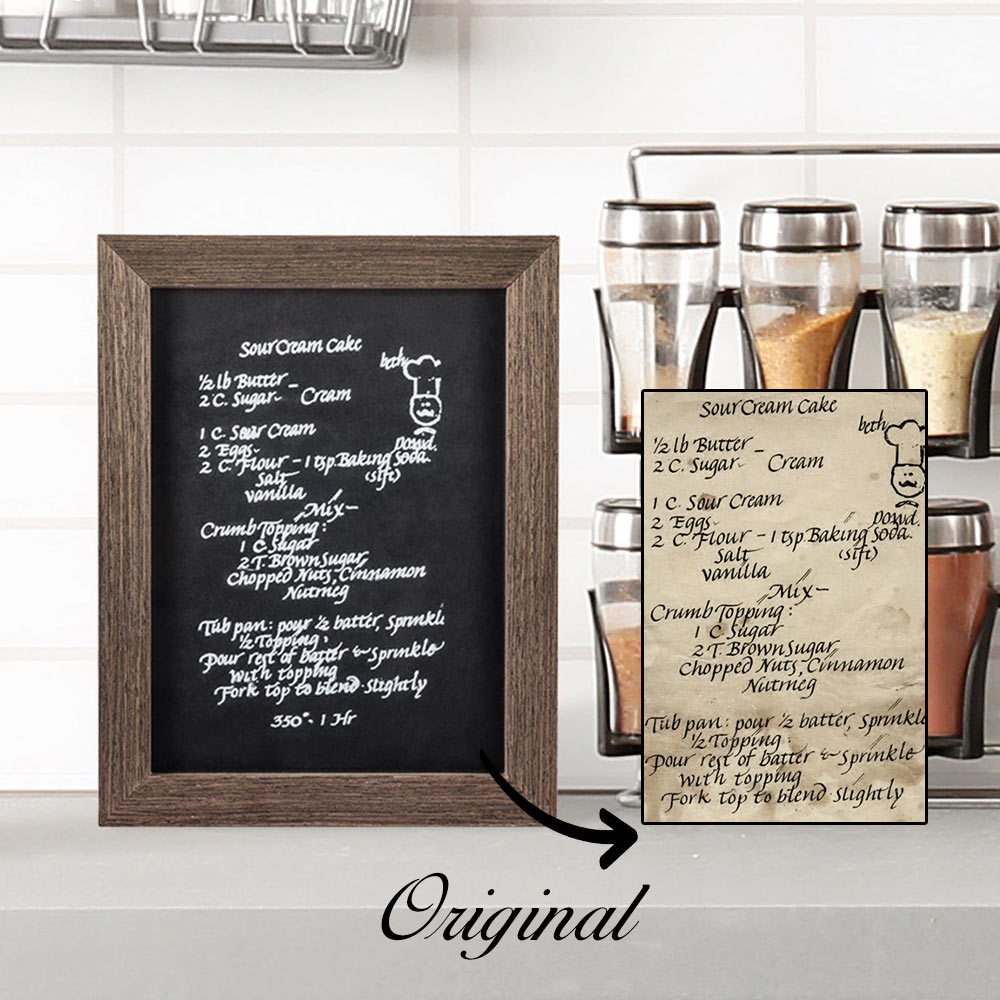 Sour Cream Cake
beth
½ lb Butter –
2 C. Sugar - Cream
1 C. Sour Cream
2 Eggs -
Dowd.
2 C. Flour - 1 tsp Baking Soda.
Salt (sift)
vanilla
Mix –
Crumb Topping :
1 C. Sugar
2 T. Brown Sugar
Chopped Nuts, Cinnamon
Nutmeg
Tub pan: pour ½ batter, Sprinkl
½ Topping :
Pour rest of batter & Sprinkle
with topping
Fork top to blend slightly
350° - 1 Hr
Sour Cream Cake
beth
½ lb Butter –
2 C. Sugar - Cream
1 C. Sour Cream
2 Eggs -
Dowd.
2 C. Flour - 1 tsp Baking Soda.
Salt (sift)
vanilla
Mix –
Crumb Topping :
1 C. Sugar
2 T. Brown Sugar
Chopped Nuts, Cinnamon
Nutmeg
Tub pan: pour ½ batter, Sprinkle
½ Topping :
Pour rest of batter & Sprinkle
with topping
Fork top to blend slightly
Original